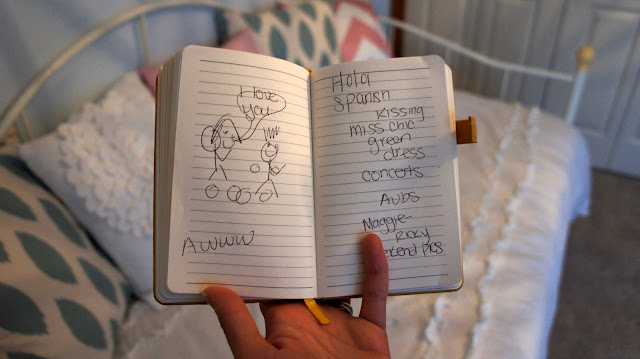 I love
you
Awww
Hola
Spanish
Kissing
miss chic
green
dress
concerts
Aubs
Maggie
Ricky
pics